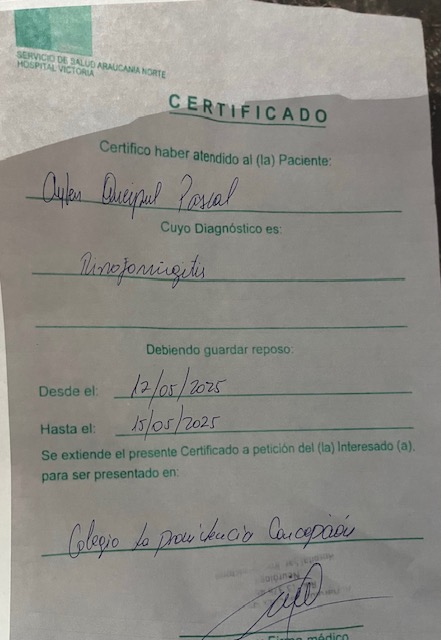 SERVICIO DE SALUD ARAUCANIA NORTE
HOSPITAL VICTORIA
CERTIFICADO
Certifico haber atendido al (la) Paciente:
Pascal
Cuyo Diagnóstico es:
Rinofaringitis
Debiendo guardar reposo:
Desde el: 12/05/2025
Hasta el: 15/05/2025
Se extiende el presente Certificado a petición del (la) Interesado (a),
para ser presentado en:
Colegio la providencia Concepción
Firma médico